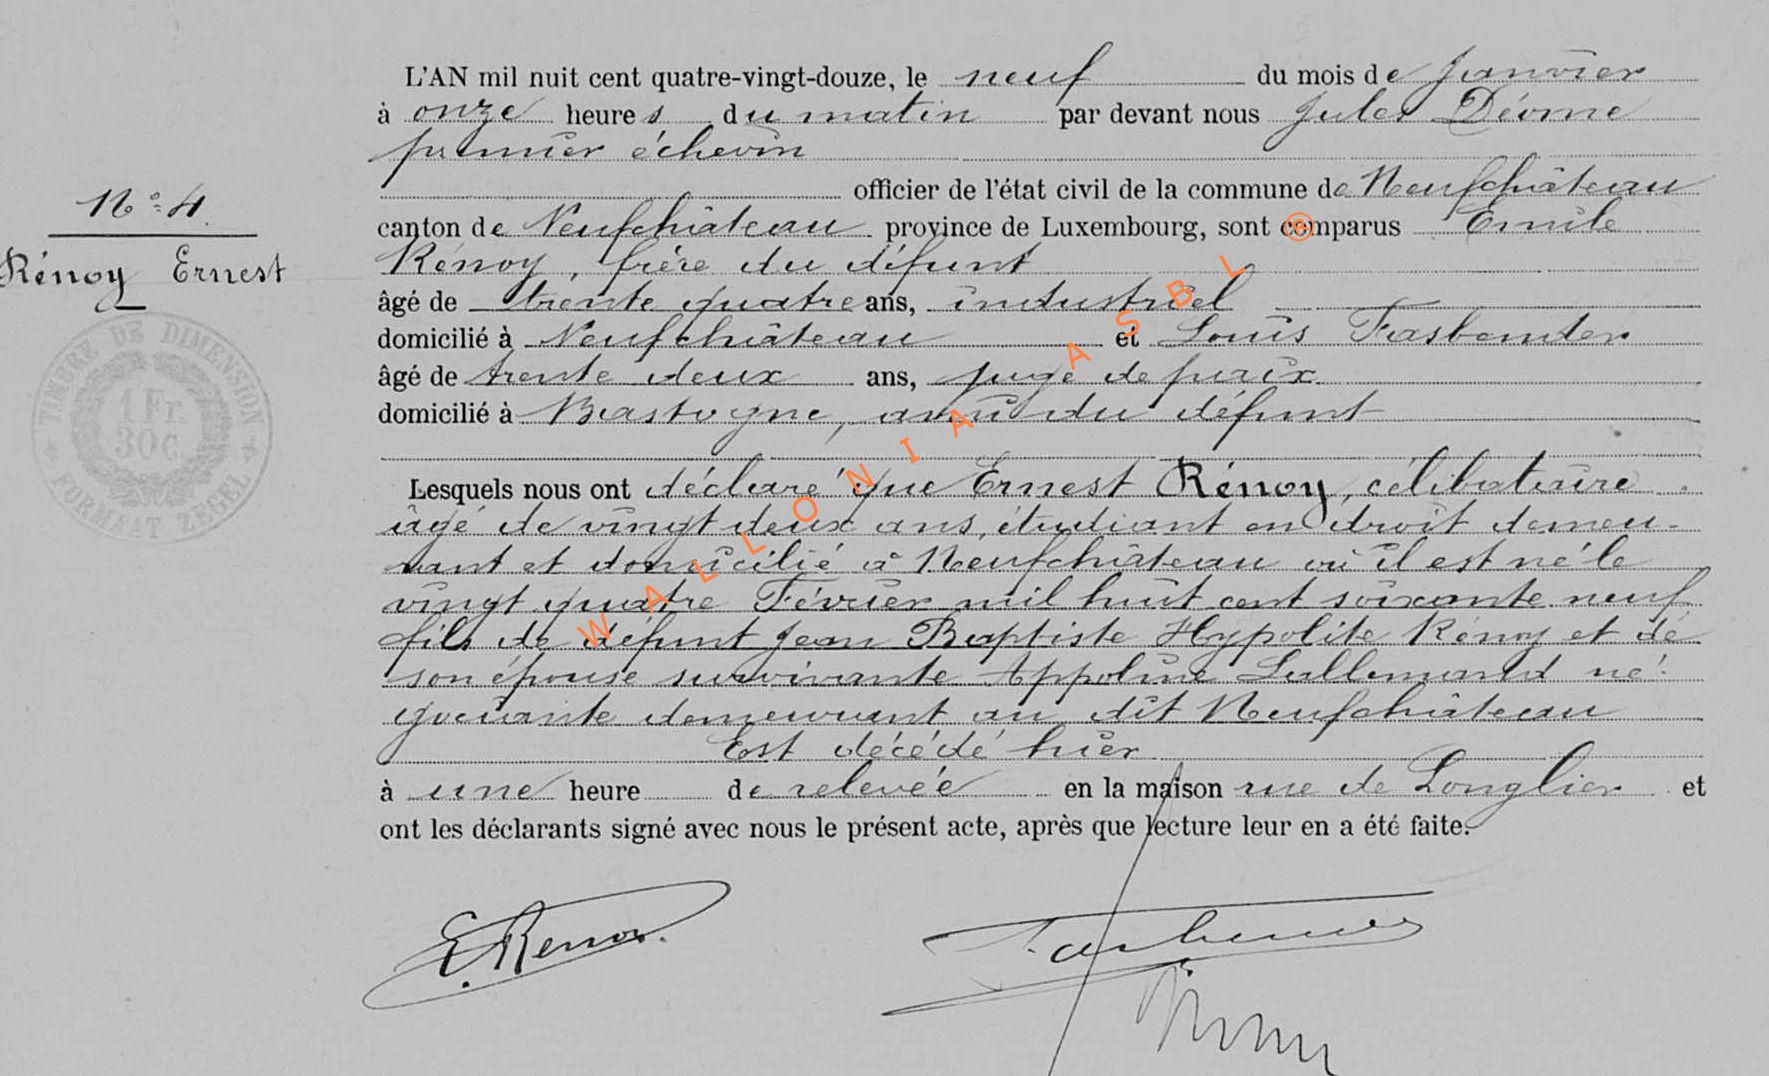 L'AN mil huit cent quatre-vingt-douze, le neuf du mois de Janvier
à onze heures du matin par devant nous Jules Déome
premier échevin
officier de l'état civil de la commune de Neufchâteau
N° 4.
canton de Neufchâteau province de Luxembourg, sont comparus Emile
Rénoy Ernest
Rénoy, frère du défunt
âgé de trente quatre ans, industriel
domicilié à Neufchâteau et Louis Fasbender
âgé de trente deux ans, juge de paix
domicilié à Bastogne, ami du défunt
TIMBRE DE DIMENSION
1 Fr.
30 c.
FORMAAT ZEGEL
Lesquels nous ont déclaré que Ernest Rénoy, célibataire
âgé de vingt deux ans, étudiant en droit demeu-
rant et domicilié à Neufchâteau où il est né le
vingt quatre Février mil huit cent soixante neuf
fils de défunt Jean Baptiste Hypolite Rénoy et de
son épouse survivante Appoline Lallemand né-
gociante demeurant au dit Neufchâteau
Est décédé hier
à une heure de relevée en la maison rue de Longlier et
ont les déclarants signé avec nous le présent acte, après que lecture leur en a été faite.
E Renoy.
Fasbender
WALLONIA ASBL ©